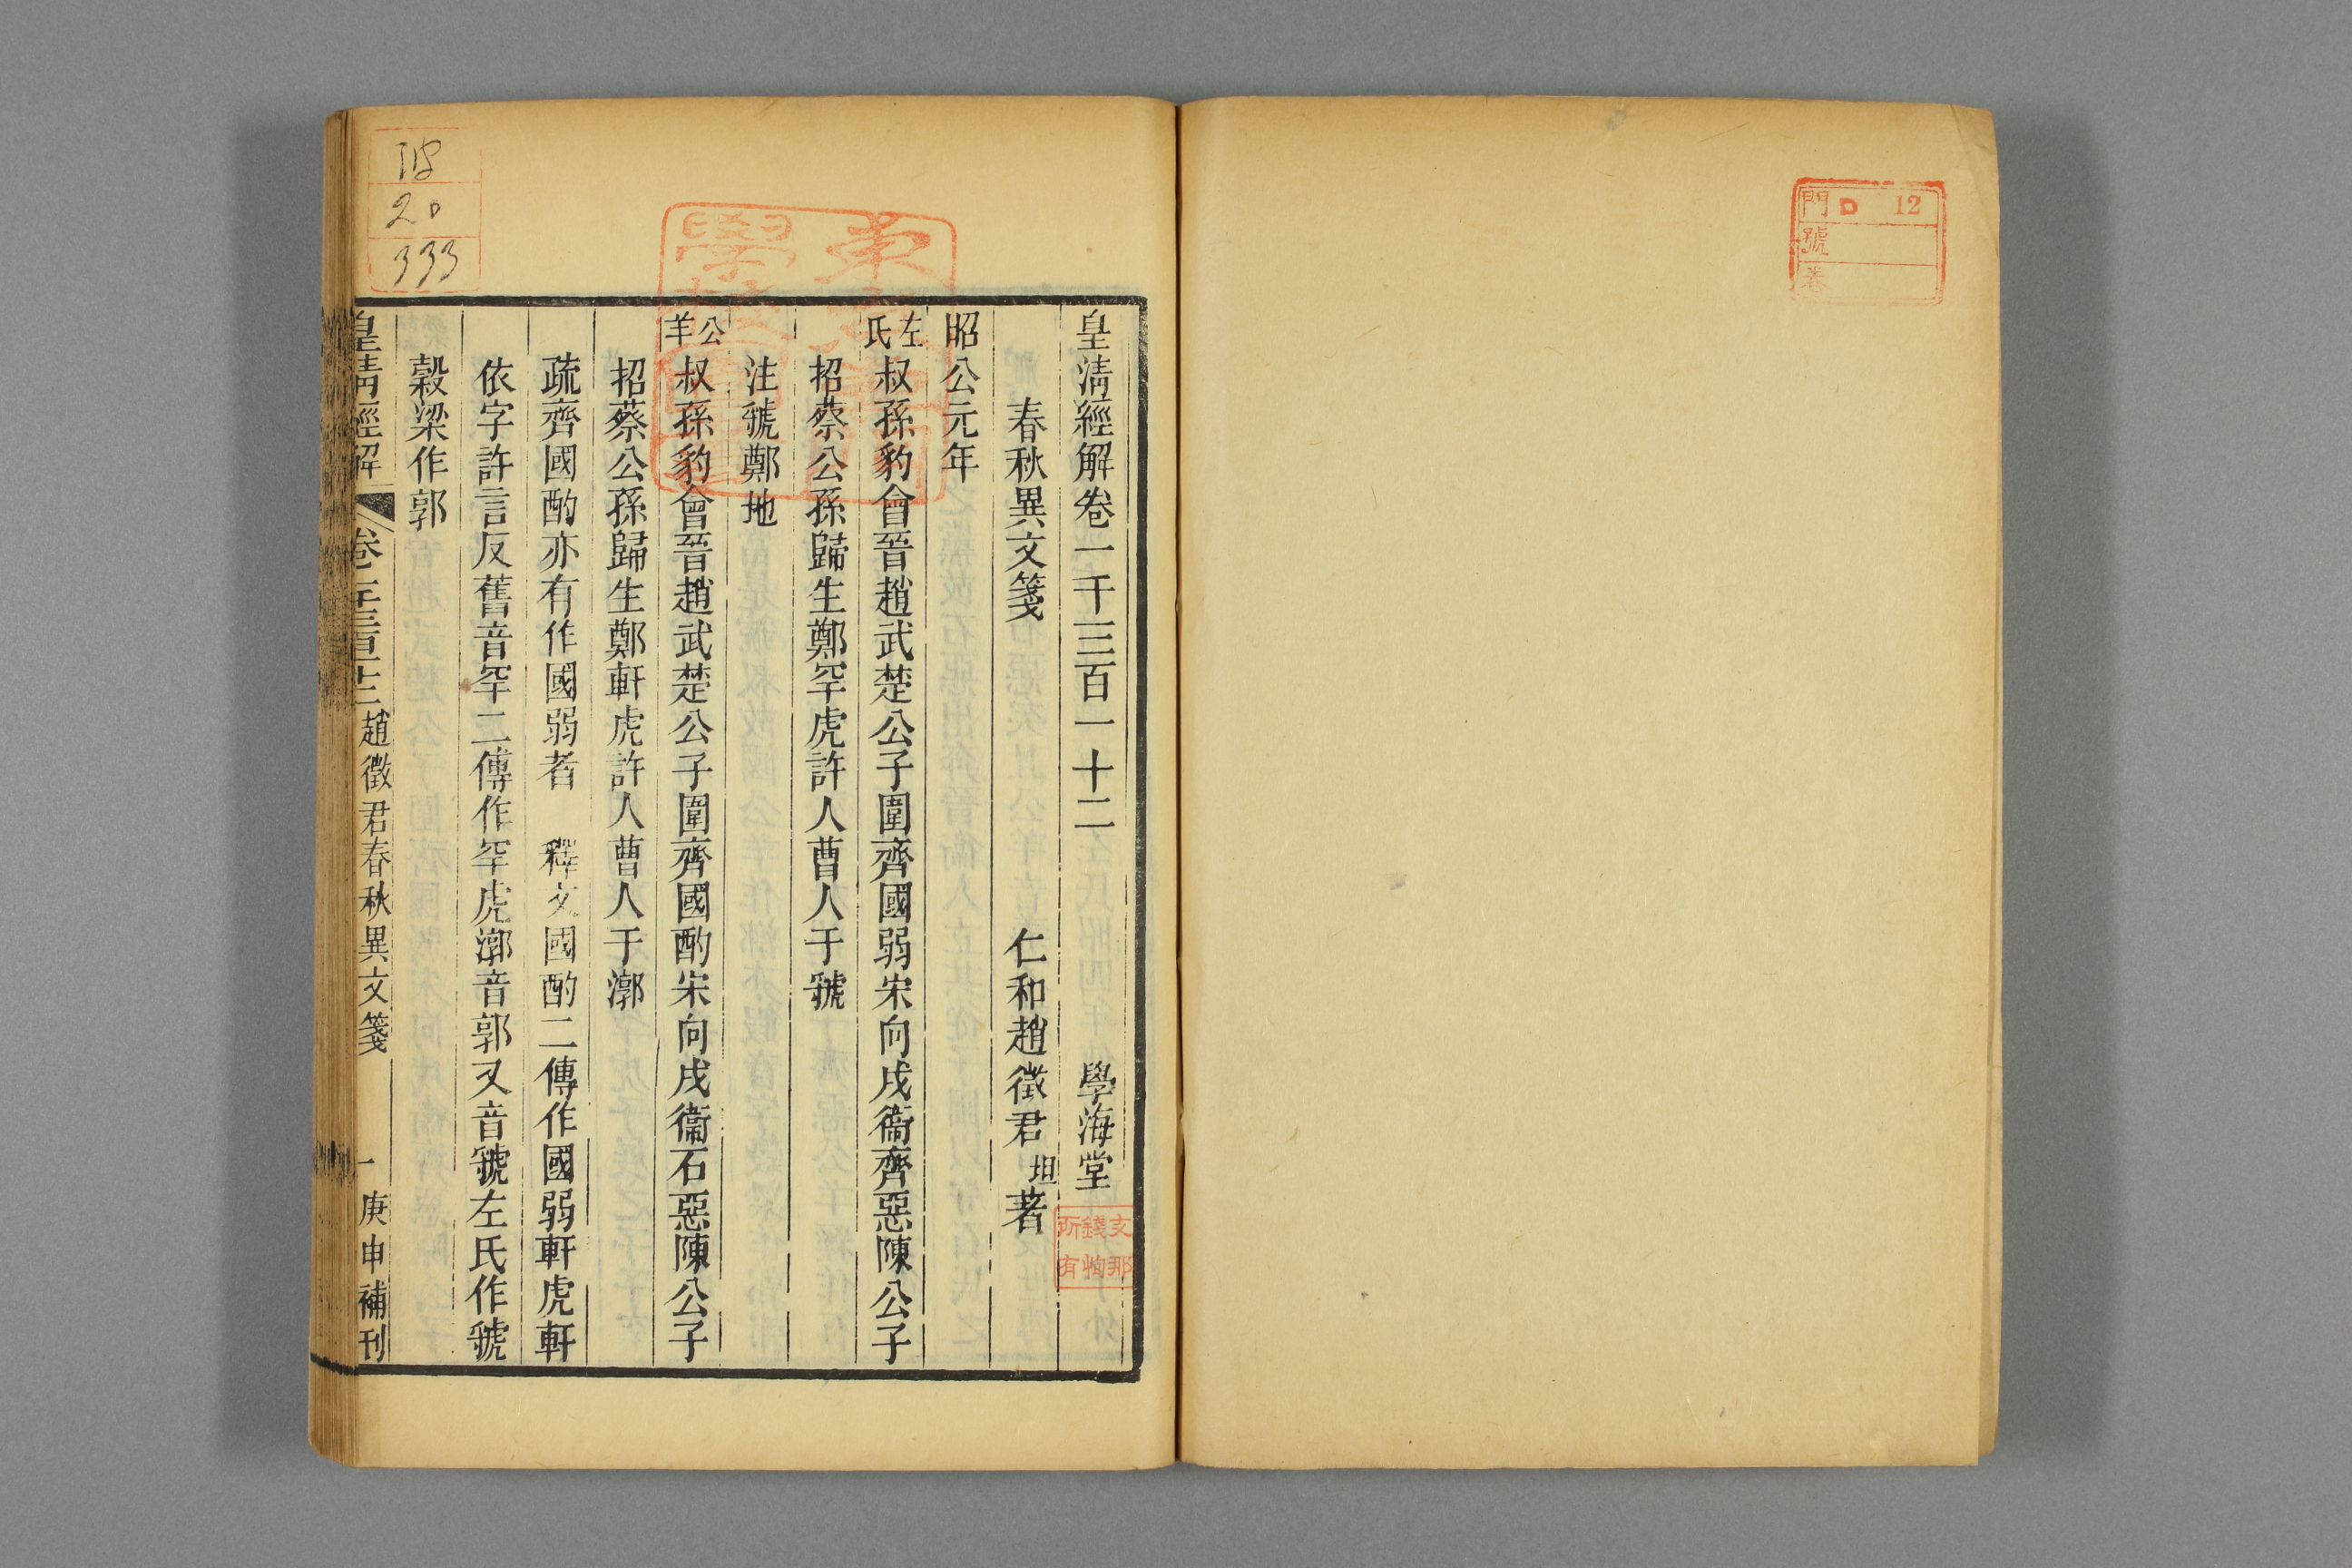 門 D 12
號
卷
皇淸經解卷一千三百一十二 學海堂
春秋異文箋 仁和趙徵君坦著
昭公元年
左氏叔孫豹會晉趙武楚公子圍齊國弱宋向戌衞齊惡陳公子
招蔡公孫歸生鄭罕虎許人曹人于虢
注虢鄭地
公羊叔孫豹會晉趙武楚公子圍齊國酌宋向戌衞石惡陳公子
招蔡公孫歸生鄭軒虎許人曹人于漷
疏齊國酌亦有作國弱者 釋文國酌二傳作國弱軒虎軒
依字許言反舊音罕二傳作罕虎漷音郭又音虢左氏作虢
穀梁作郭
皇淸經解 卷一千三百十二 趙徵君春秋異文箋 一 庚申補刊
支那
錢恂
所有
20
333